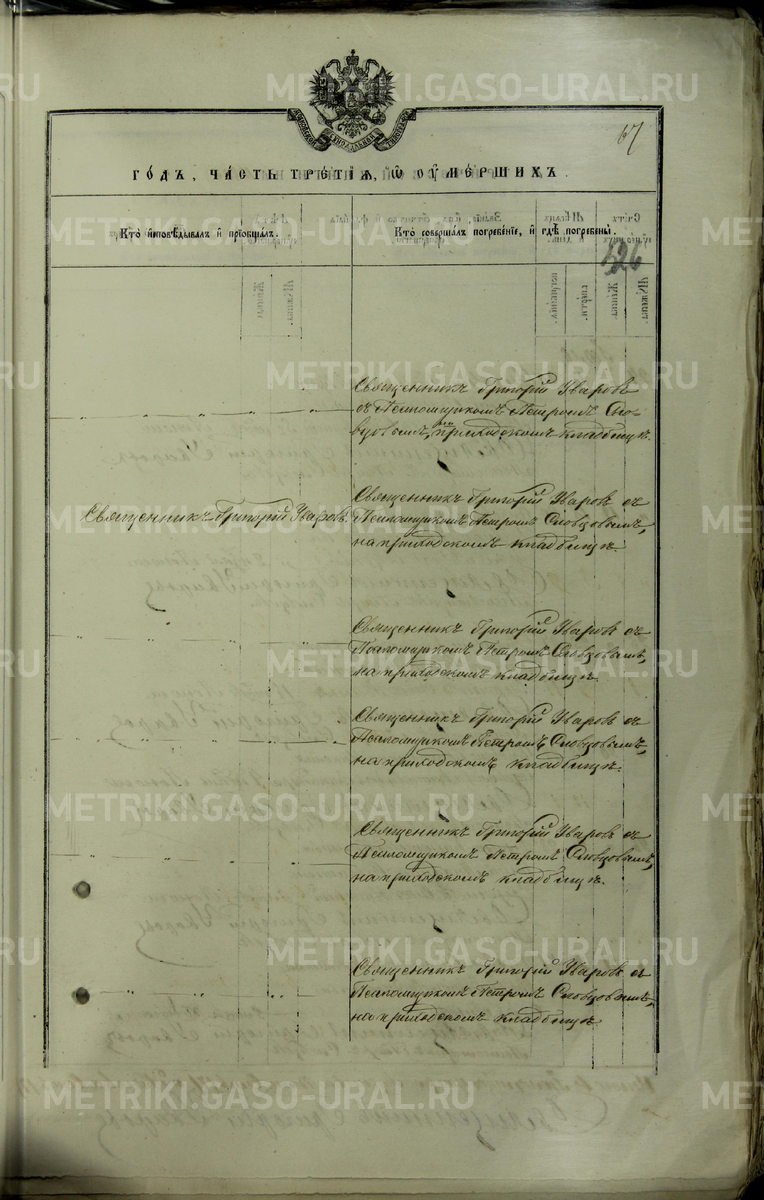 67
ГОДЪ, ЧАСТЬ ТРЕТІѦ, Ѡ ОУМЕРШИХЪ.
Кто исповѣдывалъ и прїобщалъ.
Кто совершалъ погребенїе, и гдѣ погребены.
526
Священникъ Григорій Уваровъ
съ Псаломщикомъ Петромъ Слов-
цовымъ, на приходскомъ кладбищѣ.
Священникъ Григорій Уваровъ.
Священникъ Григорій Уваровъ съ
Псаломщикомъ Петромъ Словцовымъ,
на приходскомъ кладбищѣ.
Священникъ Григорій Уваровъ съ
Псаломщикомъ Петромъ Словцовымъ,
на приходскомъ кладбищѣ.
Священникъ Григорій Уваровъ съ
Псаломщикомъ Петромъ Словцовымъ,
на приходскомъ кладбищѣ.
Священникъ Григорій Уваровъ съ
Псаломщикомъ Петромъ Словцовымъ,
на приходскомъ кладбищѣ.
Священникъ Григорій Уваровъ съ
Псаломщикомъ Петромъ Словцовымъ,
на приходскомъ кладбищѣ
METRIKI.GASO-URAL.RU